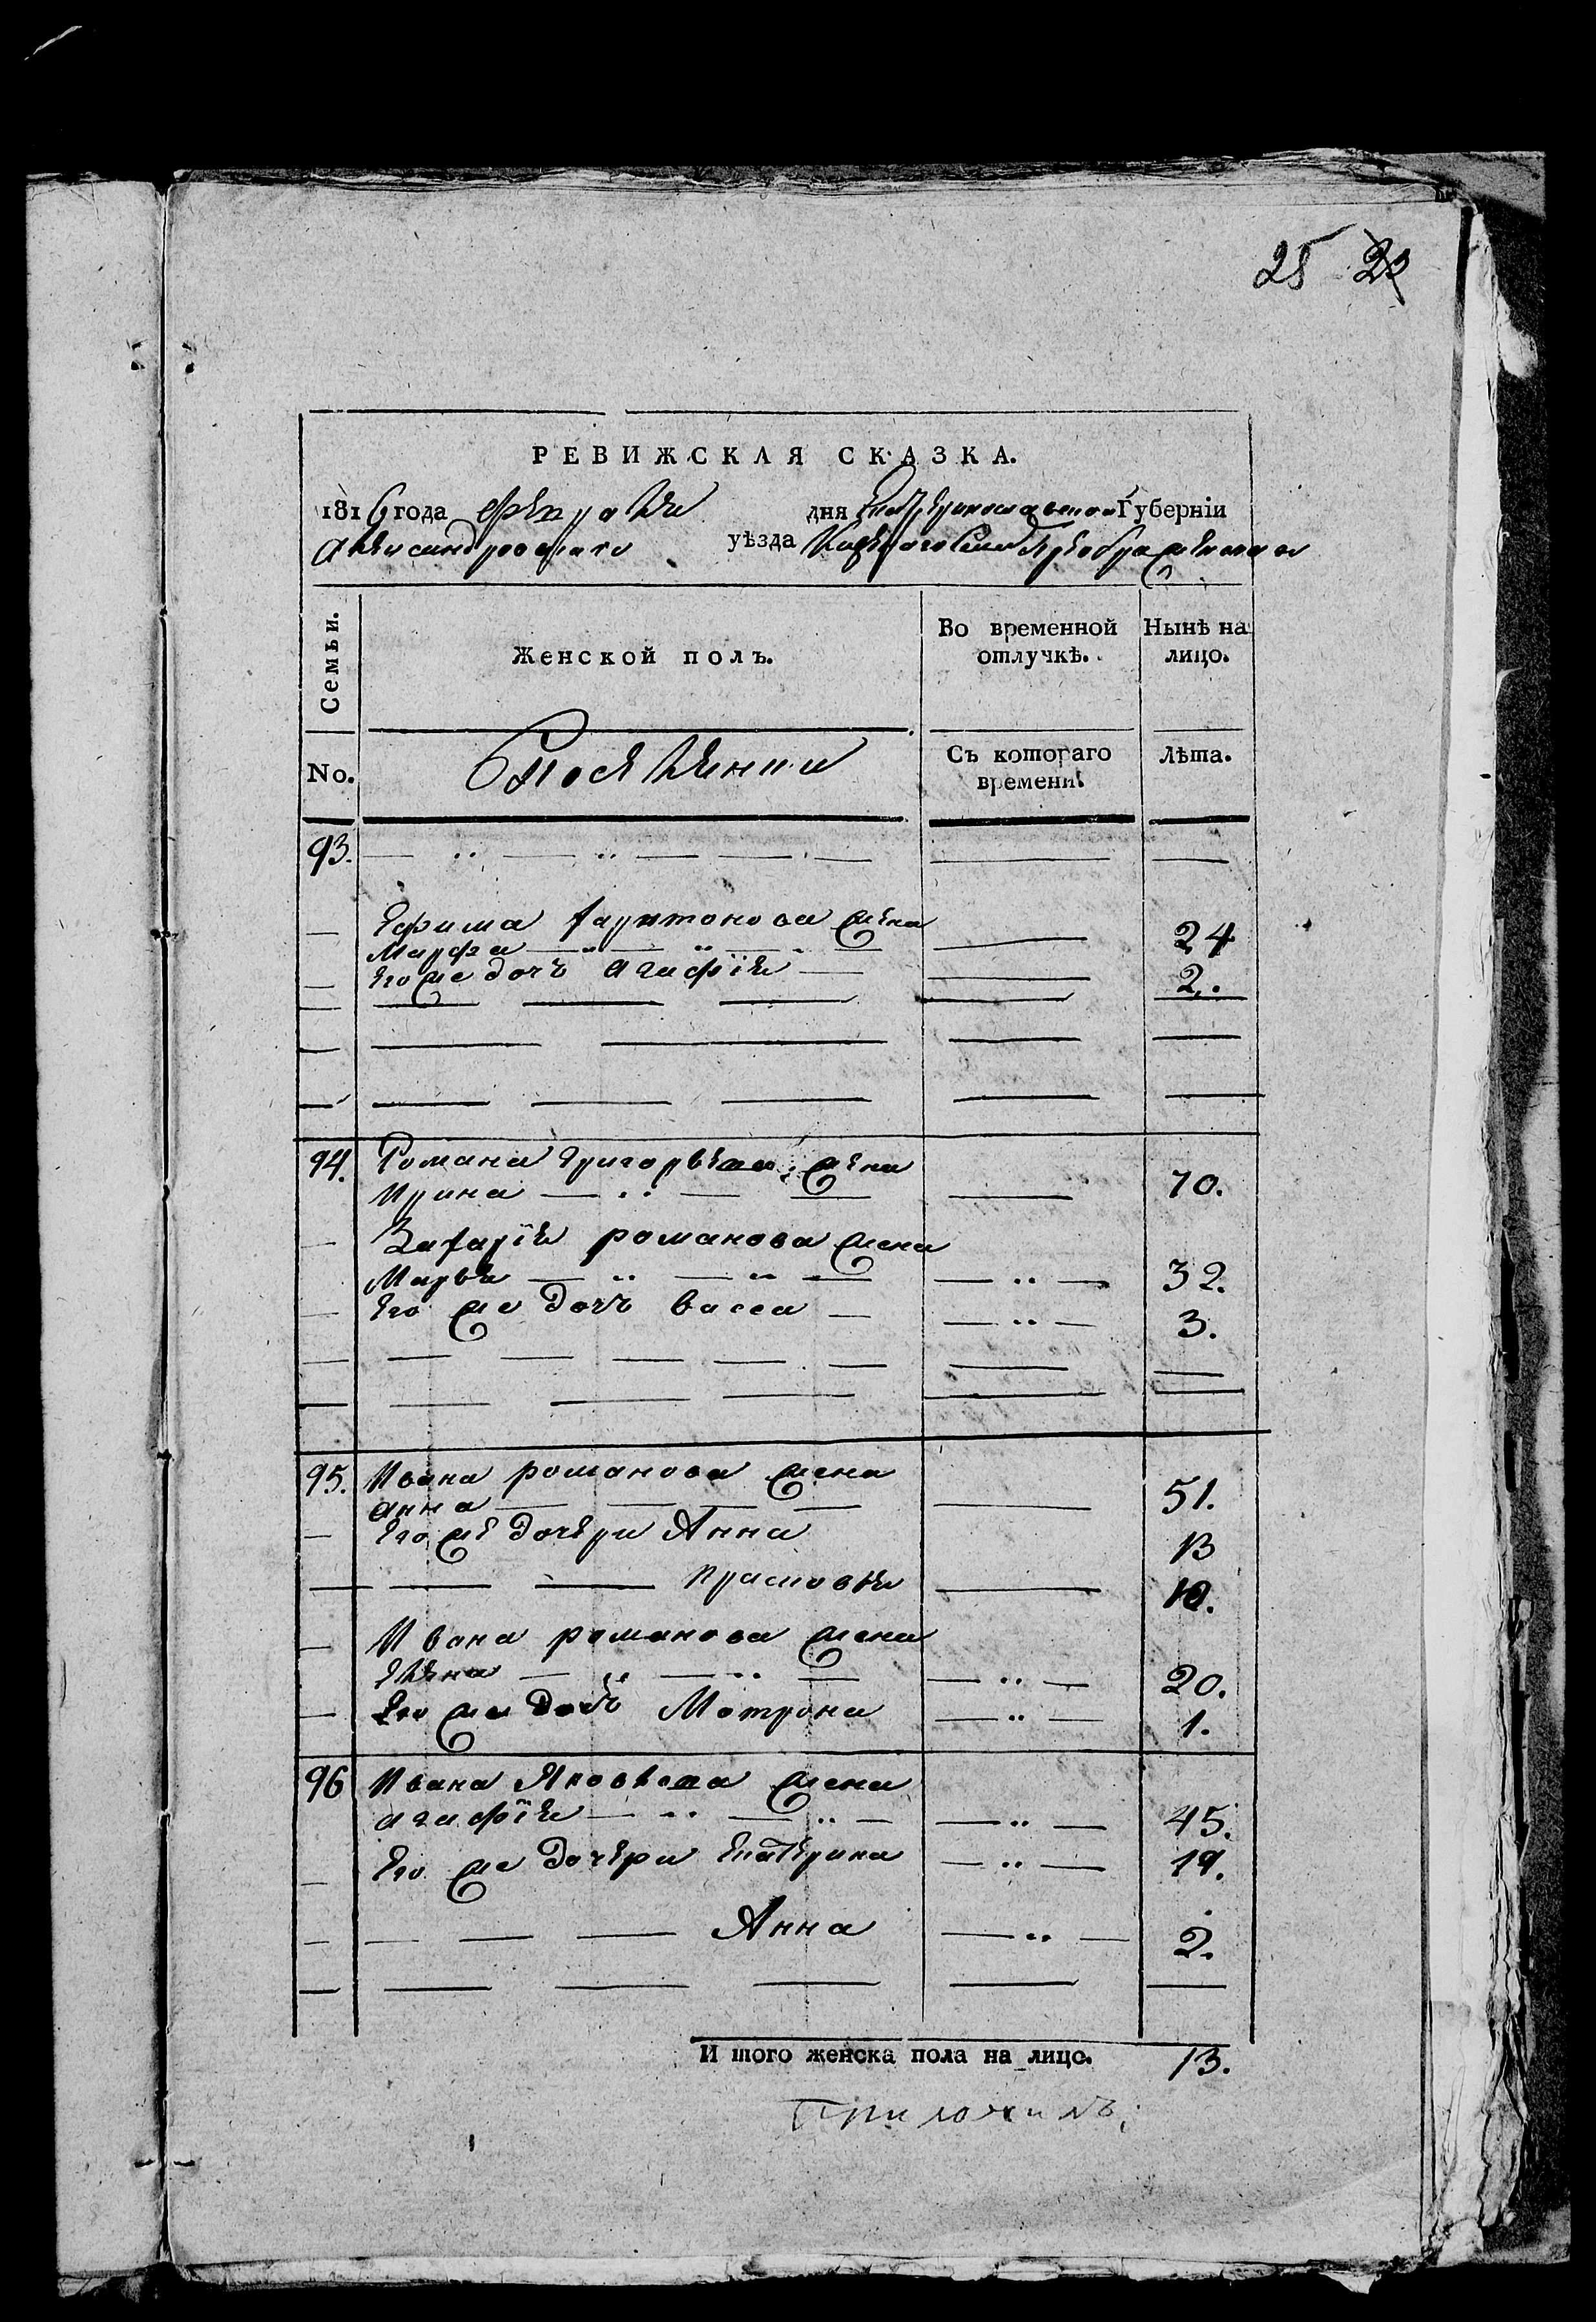 25 23
РЕВИЖСКАЯ СКАЗКА.
1816 года февраля дня Екатеринославской Губерніи
Александровскаго уѣзда Казеннаго Села Преображенскаго
Семьи.
Женской полъ.
Во временной отлучкѣ.
Нынѣ на лицо.
No.
Поселянки
Съ котораго времени.
Лѣта.
93.
Ефима Харитонова жена
Марфа 24
Его же дочь Агафія 2.
94. Романа Григорьева жена
Ирина 70.
Захарія романова жена
Марья 32.
Его же дочь Васса 3.
95. Ивана романова жена
анна 51.
Его же дочери Анна 13
Прасковя 10.
Ивана романова жена
Елена 20.
Его же дочь Матрона 1.
96 Ивана Яковлева жена
агафія 45.
Его же дочери Екатерина 19.
Анна 2.
И того женска пола на лицо. 13.
приложилъ